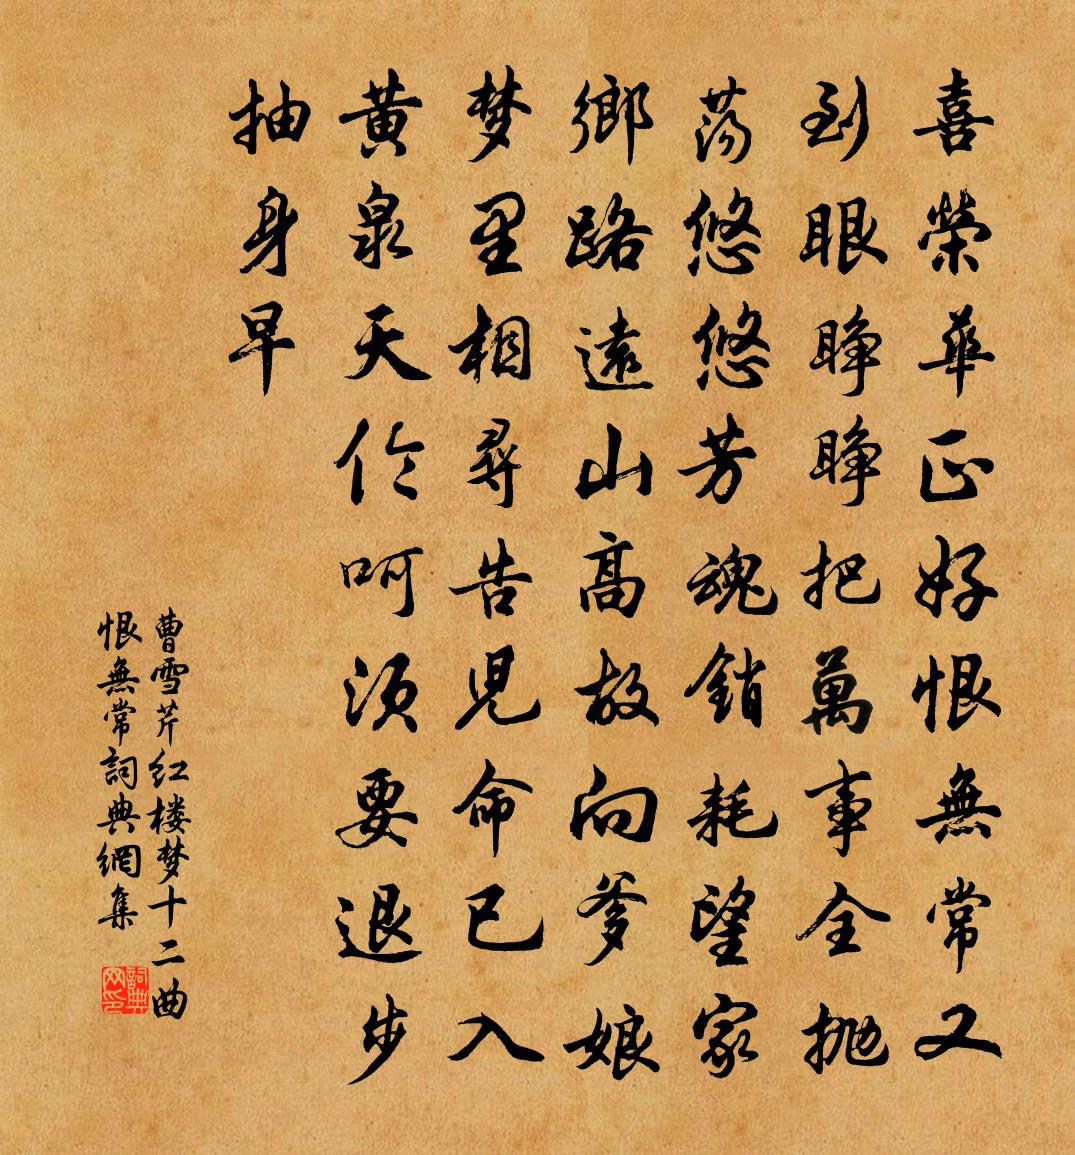 喜榮華正好恨無常又
到眼睜睜把萬事全拋
蕩悠悠芳魂銷耗望家
鄉路遠山高故向爹娘
梦里相尋告兒命已入
黄泉天倫呵須要退步
抽身早
曹雪芹红楼梦十二曲
恨無常詞典網集
詞典网印